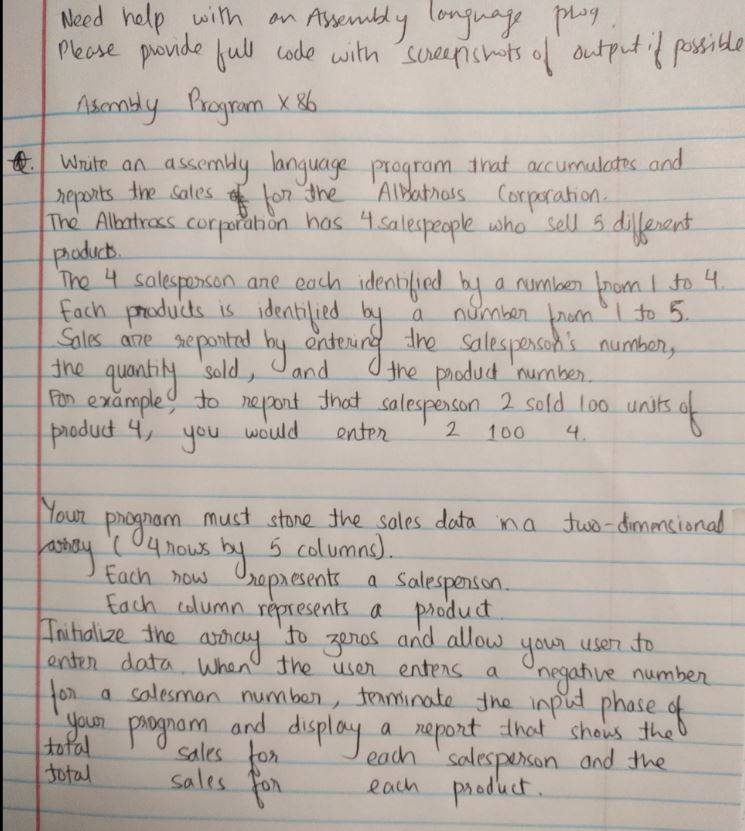 Need help with an Assembly language prog.
Please provide full code with screenshots of output if possible
Asembly Program x 86
Q. Write an assembly language program that accumulates and
reports the sales for the Albatross Corporation.
The Albatross corporation has 4 salespeople who sell 5 different
products.
The 4 salesperson are each identified by a number from 1 to 4.
Each products is identified by a number from 1 to 5.
Sales are reported by entering the salesperson's number,
the quantity sold, and the product number.
For example, to report that salesperson 2 sold 100 units of
product 4, you would enter 2 100 4.
Your program must store the sales data in a two-dimensional
array (4 rows by 5 columns).
Each row represents a salesperson.
Each column represents a product.
Initialize the array to zeros and allow your user to
enter data. When the user enters a negative number
for a salesman number, terminate the input phase of
your program and display a report that shows the
total sales for each salesperson and the
total sales for each product.